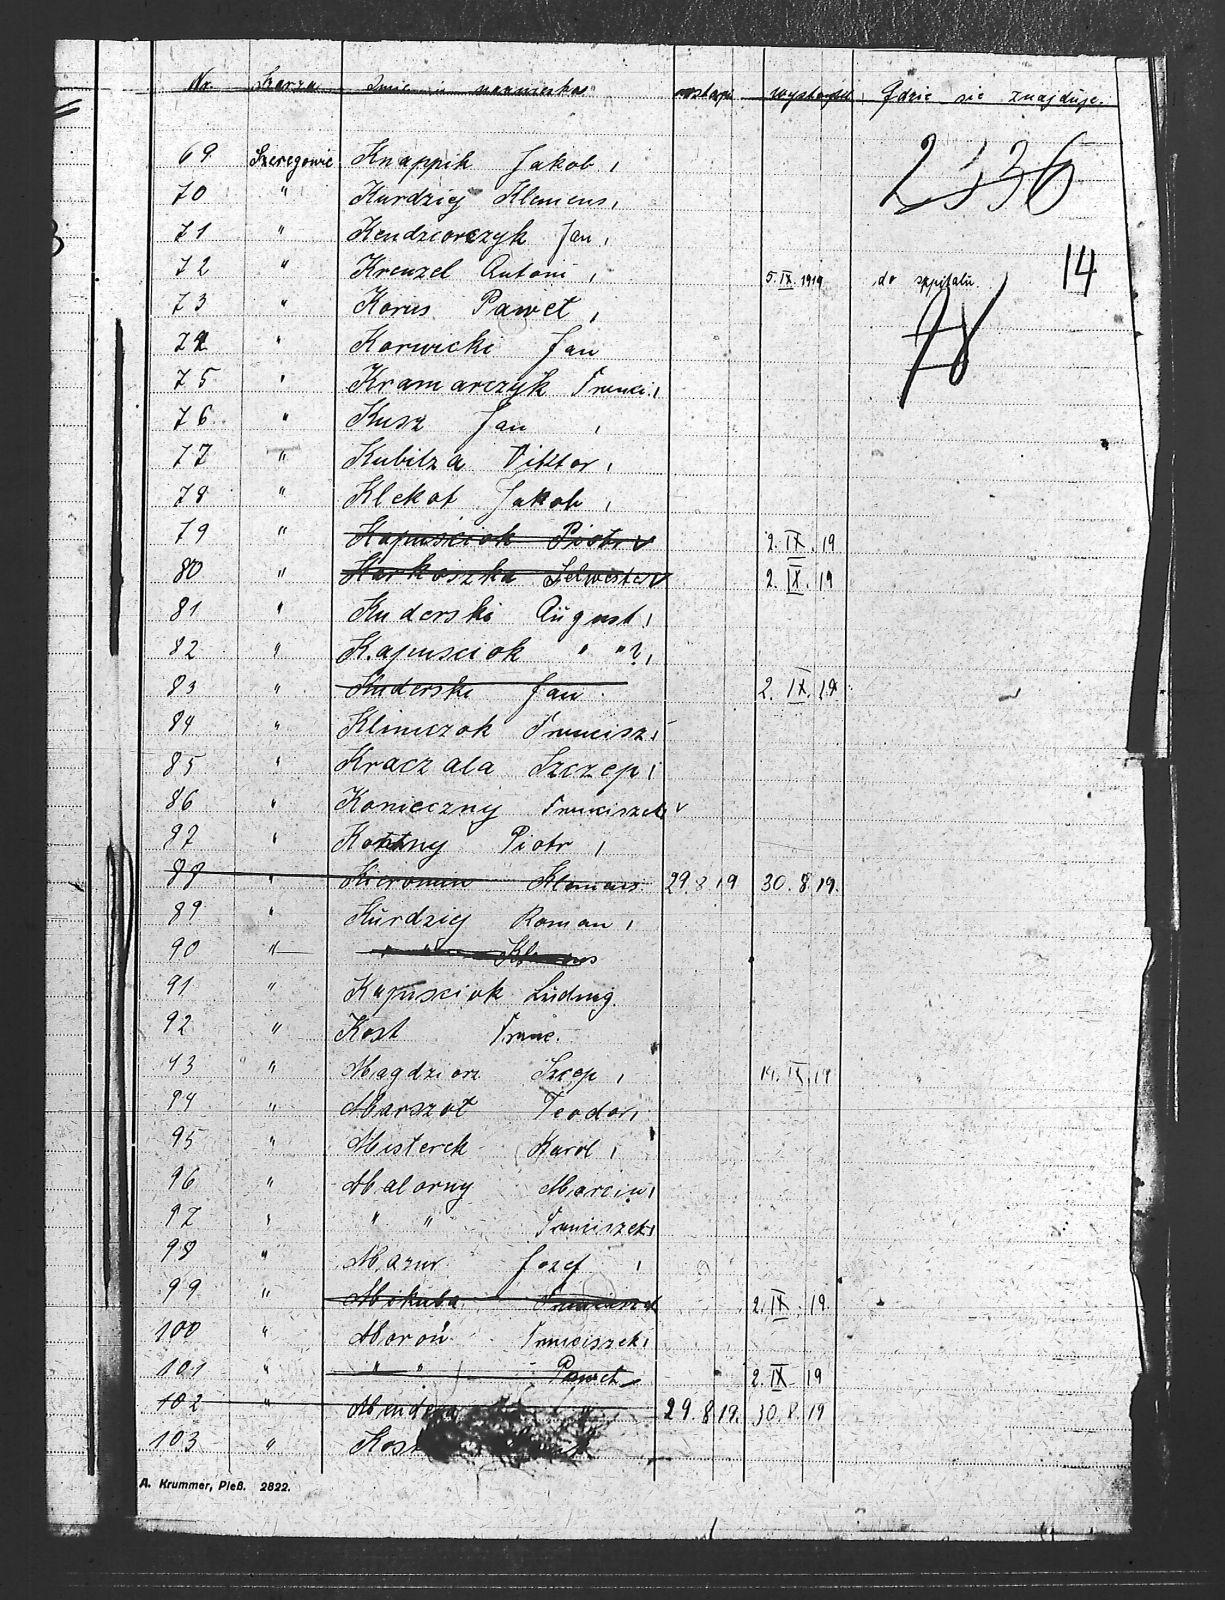 Nr. Szarża Imie i nazwisko wstąpił wystąpił Gdzie sie znajduje.
2336
69 Szeregowic Knappik Jakob
70 " Kurdziej Klemens
71 " Kendziorczyk Jan
14
72 " Krenzel Antoni 5. IX. 1919 do szpitalu
73 " Korus Paweł
78
74 " Korwicki Jan
75 " Kramarczyk Franci.
76. " Kusz Jan
77 " Kubitza Viktor
78 " Klekot Jakob
79 " Kapuściok Piotr 2. IX. 19
80 " Karkoszka Selwester 2. IX. 19
81 " Kuderski August
82 " Kapusciok " "?
83 " Kuderski Jan 2. IX. 19
84 " Klimczok Francisz
85 " Kraczala Szczep
86 " Konieczny Franciszek
87 " Piotr
88 " Klemens 29. 8 19 30. 8. 19.
89 " Kŭrdziej Roman
90 " " " Klemens
91 " Kapusciok Lŭdwig.
92 " Kost Franc.
93 " Magdziorz Szcep 14. IX. 19
94 " Marszoł Teodor
95 " Misterek Karol
96 " Malorny Marcin
97 " " " Franciszek
98 " Mazur Jozef
99 " Mikula 2. IX. 19.
100 " Moroń Franciszek
101 " " " Paweł 2. IX 19
102 " 29. 8. 19. 30. 8. 19
103 "
A. Krummer, Pleß. 2822.